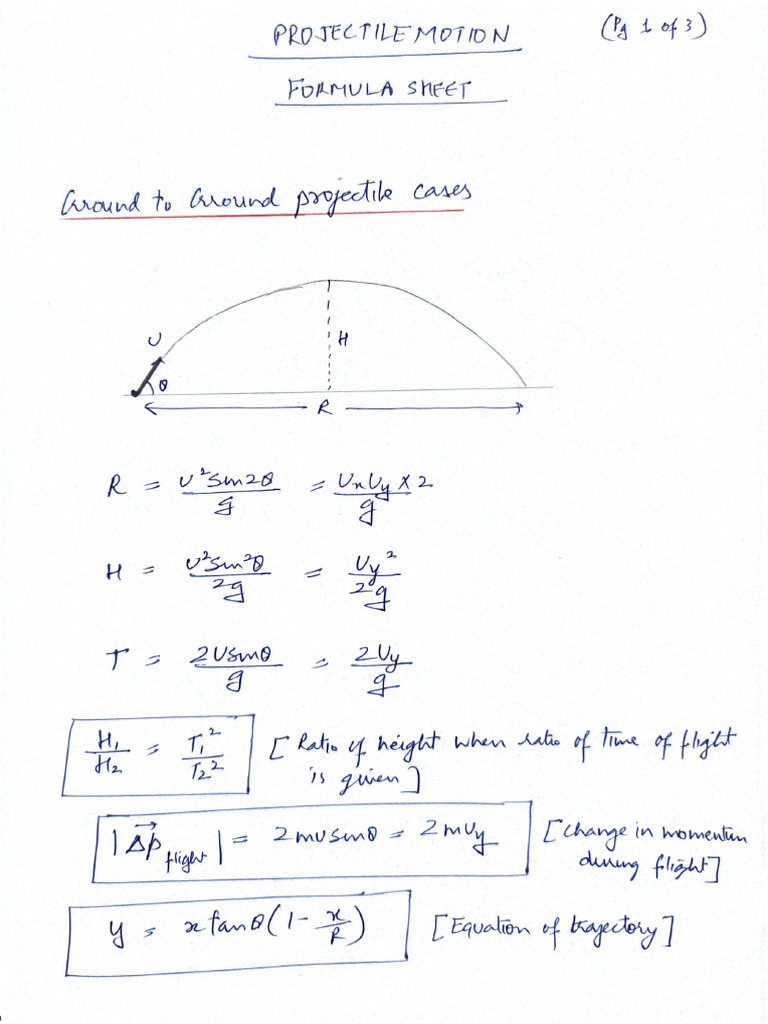 PROJECTILE MOTION
(Pg 1 of 3)
FORMULA SHEET
Ground to Ground projectile cases
U
H
θ
R
R = U²sin2θ/g = UxUy × 2/g
H = U²sin²θ/2g = Uy²/2g
T = 2Usinθ/g = 2Uy/g
H₁/H₂ = T₁²/T₂² [Ratio of height when ratio of time of flight
is given]
|Δp⃗ flight| = 2musinθ = 2mUy [Change in momentum
during flight]
y = xtanθ(1 - x/R) [Equation of trajectory]